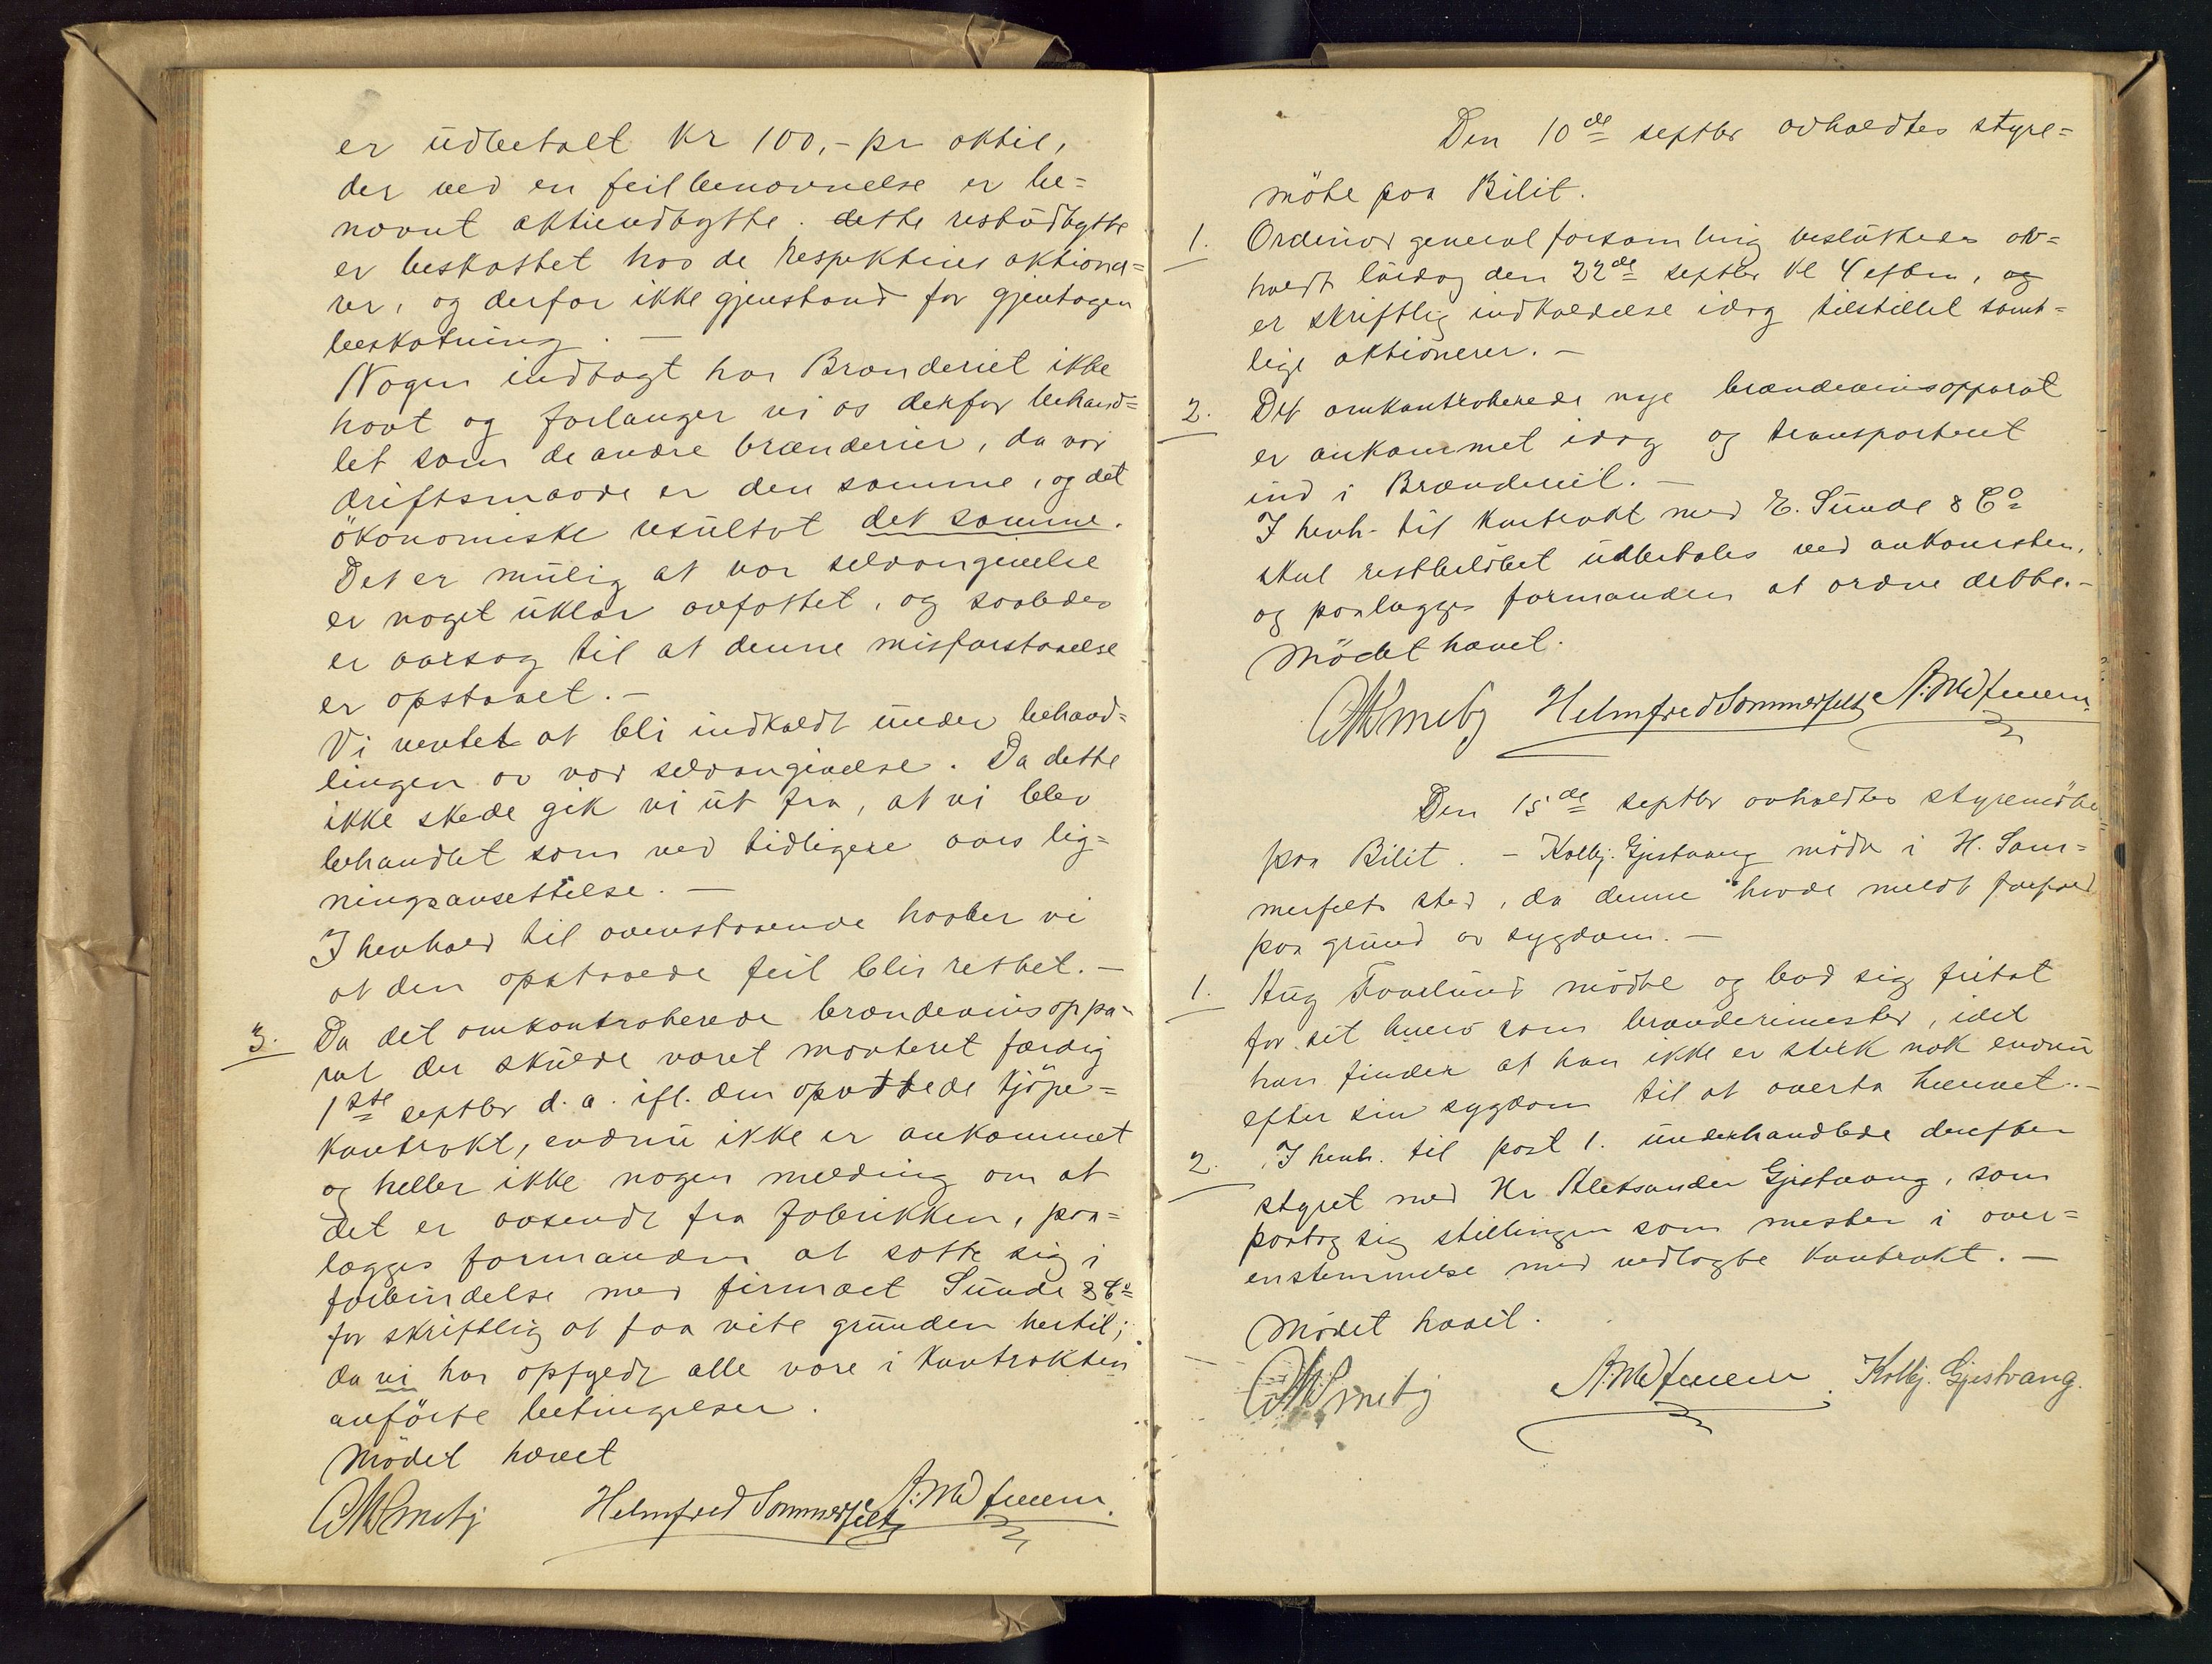 er udbetalt Kr 100,- pr aktie,
der ved en feilbenævnelse er be=
nævnt aktieudbytte. dette restudbytte
er beskattet hos de respektive aktionæ=
rer, og derfor ikke gjenstand for gjentagen
beskatning. -
Nogen indtægt har Brænderiet ikke
havt og forlanger vi os derfor behand=
let som de andre brænderier, da vor
driftsmaade er den samme, og det
ökonomiske resultat det samme.
Det er mulig at vor selvangivelse
er noget uklar avfattet, og saaledes
er aarsag til at denne misforstaaelse
er opstaaet. -
Vi ventet at bli indkaldt under behand=
lingen av vor selvangivelse. Da dette
ikke skede gik vi ut fra, at vi blev
behandlet som ved tidligere aars lig=
ningsansettelse. -
I henhold til ovenstaaende haaber vi
at den opstaaede feil blir rettet. -
3. Da det omkontraherede brændevinsappa-
rat der skulde været monteret færdig
1ste septbr d.a. ifl. den oprettede kjöpe=
kontrakt, endnu ikke er ankommet
og heller ikke nogen melding om at
det er avsendt fra fabrikken, paa=
lægges formanden at sætte sig i
forbindelse med firmaet Sunde & Co
for skriftlig at faa vite grunden hertil;
da vi har opfyldt alle vore i kontrakten
anförte betingelser.
Mödet hævet
Helmfred Sommerfeldt
Den 10de septbr avholdtes styre=
möte paa Bilit.
1. Ordinær generalforsamling besluttedes av=
holdt lördag den 22de septbr kl 4 eftm, og
er skriftlig indkaldelse idag tilstillet samt=
lige aktionerer. -
2. Det omkontraherede nye brændevinsapparat
er ankommet idag og transporteret
ind i Brænderiet. -
I henh. til kontrakt med E. Sunde & Co
skal restbelöbet udbetales ved ankomsten,
og paalægges formanden at ordne dette. -
Mödet hævet.
Helmfred Sommerfeldt
Den 15de septbr avholdtes styremöte
paa Bilit. - Kolbj. Gjestvang mödte i H. Som=
merfelts sted, da denne havde meldt forfald
paa grund av sygdom. -
1. Aug Faarlund mödte og bad sig fritat
for sit hverv som brænderimester, idet
han finder at han ikke er sterk nok endnu
efter sin sygdom til at overta hvervet. -
2. I henh. til post 1. underhandlede derefter
styret med Hr Aleksander Gjestvang, som
paatog sig stillingen som mester i over=
enstemmelse med vedlagte kontrakt. -
Mödet hævet.
Kolbj. Gjestvang.